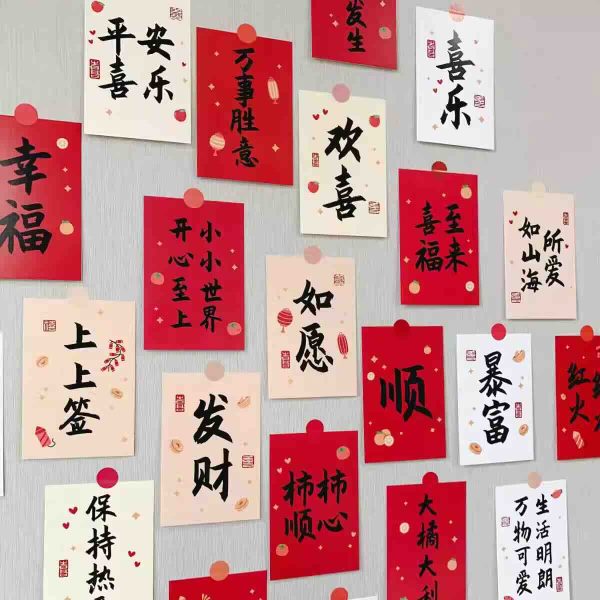 平安
喜乐
万事胜意
发生
喜乐
幸福
小小世界
开心至上
欢喜
喜至
福来
所爱
如山海
上上签
如愿
顺
暴富
红火
发财
柿柿
顺心
保持热
大橘大利
生活明朗
万物可爱